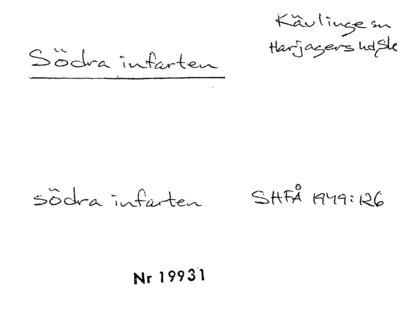 Kävlinge sn
Harjagers hd, Sk
Södra infarten
södra infarten SHFÅ 1949:126
Nr 19931